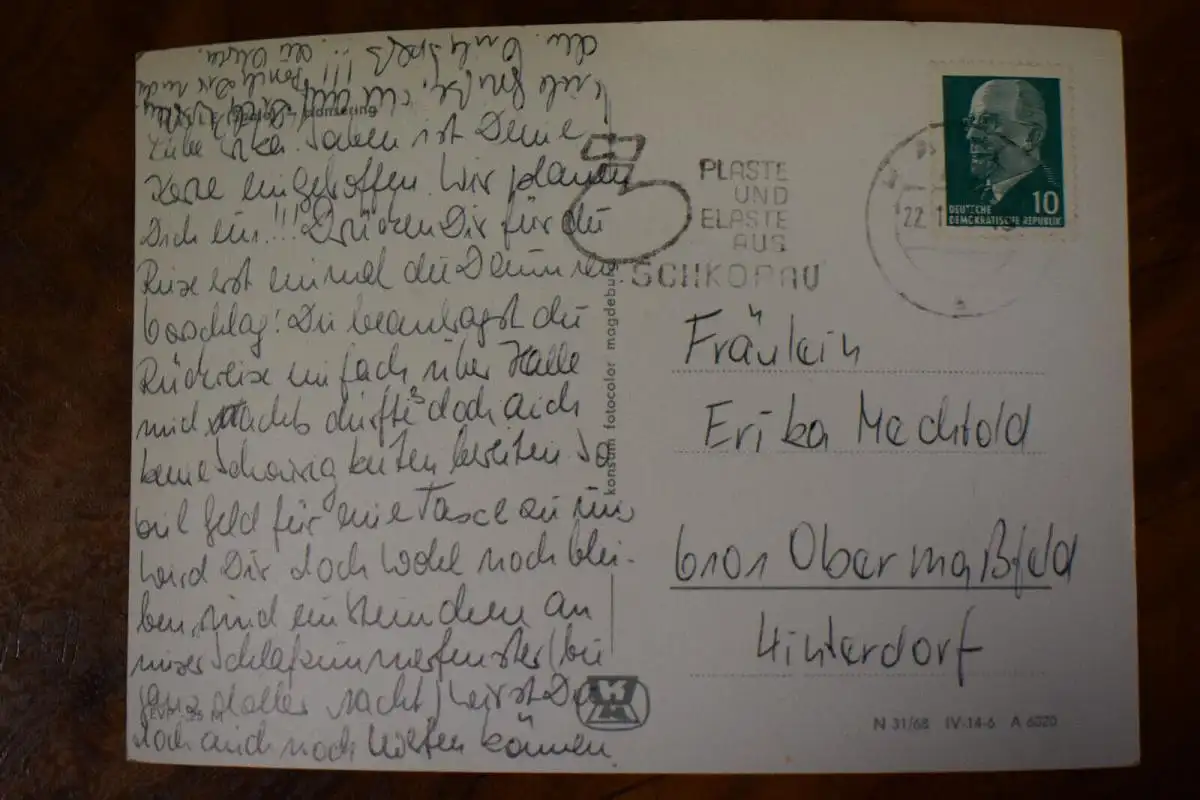 Liebe Erika. Soeben ist Deine
Karte eingetroffen. Wir planen
Dich ein!!! Drücken Dir für die
Reise erst einmal die Daumen
Vorschlag! Du beantragst die
Rückreise einfach über Halle
und nachts dürfte's doch auch
keine Schwierigkeiten bereiten. So
viel Geld für eine Taxe zu uns
wird Dir doch wohl noch blei-
ben, und ein Steinchen an
unser Schlafzimmerfenster (bei
ganz später Nacht) wirst Du
doch auch noch werfen können.
Viele Grüße
konsum fotocolor magdeburg
EVP -,25 M
PLASTE
UND
ELASTE
AUS
SCHKOPAU
22.1
10
DEUTSCHE
DEMOKRATISCHE REPUBLIK
Fräulein
Erika Mechtold
6101 Obermaßfeld
Hinterdorf
N 31/68 IV-14-6 A 6020